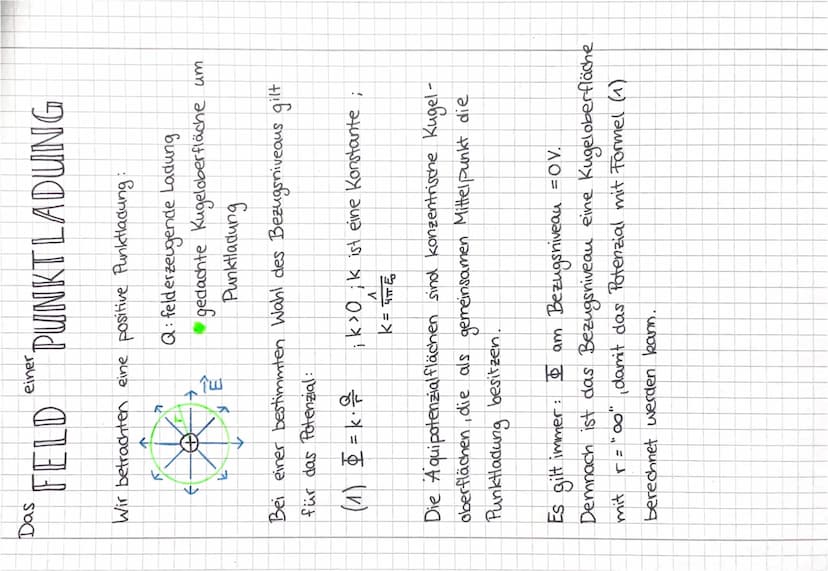 Das FELD einer PUNKTLADUNG
Wir betrachten eine positive Punktladung:
Q: felderzeugende Ladung
gedachte Kugeloberfläche um
Punktladung
r
+
E⃗
Bei einer bestimmten Wahl des Bezugsniveaus gilt
für das Potenzial:
(1) Φ = k · Q/r ; k>0 ; k ist eine Konstante ;
k = 1/4πε₀
Die Äquipotenzialflächen sind konzentrische Kugel-
oberflächen, die als gemeinsamen Mittelpunkt die
Punktladung besitzen.
Es gilt immer: Φ am Bezugsniveau = 0V.
Demnach ist das Bezugsniveau eine Kugeloberfläche
mit r = "∞", damit das Potenzial mit Formel (1)
berechnet werden kann.